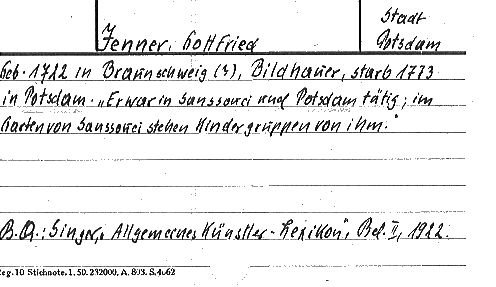 Stadt
Jenner, Gottfried Potsdam
Geb. 1722 in Braunschweig (?), Bildhauer, starb 1773
in Potsdam. „Er war in Sanssouci und Potsdam tätig; im
Garten von Sanssouci stehen Kindergruppen von ihm."
B.Q.: Singer, Allgemeines Künstler-Lexikon, Bd. II, 1922.
Reg. 10 Stichnote. 1. 50. 232000. A. 803. S. 4062